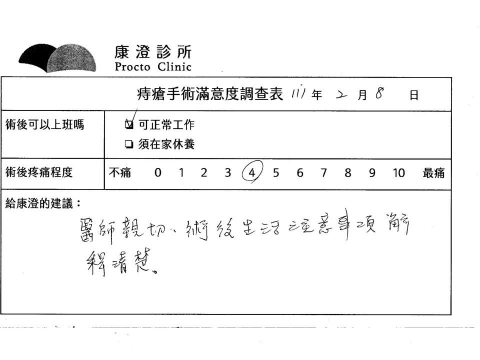 康澄診所
Procto Clinic
痔瘡手術滿意度調查表 111年 2月 8日
術後可以上班嗎
☑ 可正常工作
☐ 須在家休養
術後疼痛程度 不痛 0 1 2 3 4 5 6 7 8 9 10 最痛
給康澄的建議：
醫師親切、術後生活注意事項解
釋清楚。